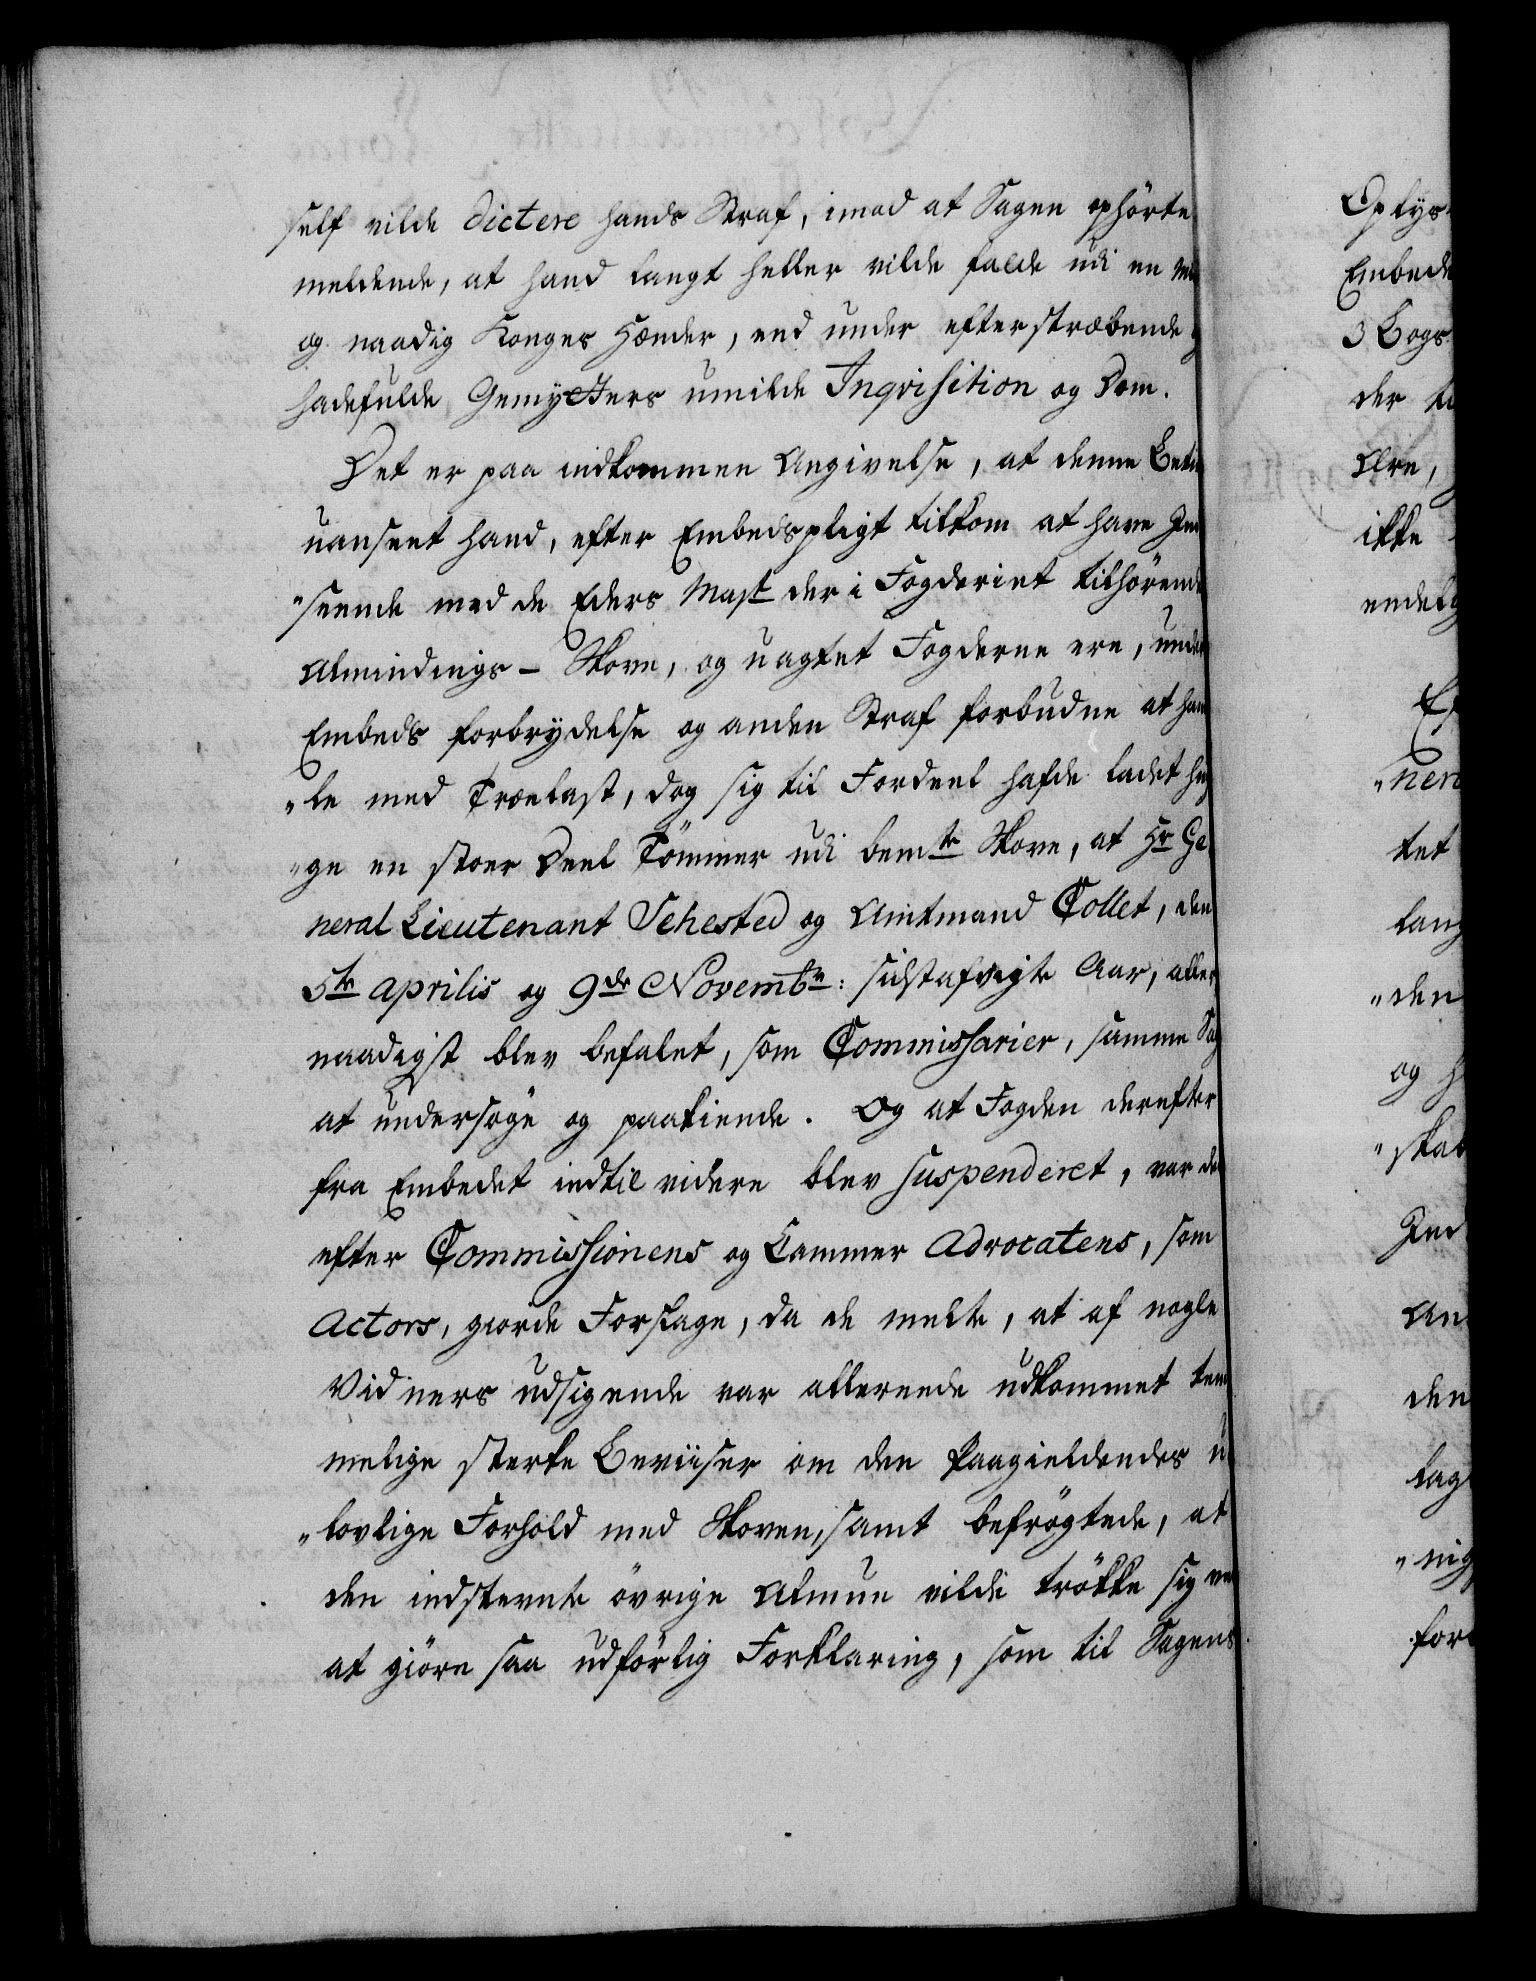 self vilde dictere hands Straf, imod at Sagen ophörte
meldende, at hand langt heller vilde falde udi en
og naadig Konges Hænder, end under efterstræbende
hadefulde Gemytters umilde Inqvisition og Dom.
Det er paa indkommen Angivelse, at denne
uanseet hand, efter Embedspligt tilkom at have Ind
"seende med de Eders Mayst der i Fogderiet tilhørende
Almindings- Skove, og uagtet Fogderne ere, under
Embeds forbrydelse og anden Straf forbudne at han
"le med Trælast, dog sig til Fordeel hafde ladet hug
"ge en stoer Deel Tömmer udi bemte Skove, at Hr Ge
neral Lieutenant Sehested og Amtmand Collet, den
5te Aprilis og 9de Novembr: sidstafvigte Aar, aller
naadigst blev befalet, som Commissarier, samme Sag
at undersöge og paakiende. Og at Fogden derefter
fra Embedet indtil videre blev suspenderet, var det
efter Commissionens og Cammer Advocatens, som
Actors, giorde Forslage, da de meldte, at af nogle
Vidners udsigende var allereede udkommet tem
melige sterke Beviiser om den Paagieldendes u
"lovlige Forhold med Skoven, samt befrögtede, at
den indstevnte övrige Almue vilde trökke sig ved
at giöre saa udförlig Forklaring, som til Sagens
Oplys
Embede
3 Bogs
der
Ære,
ikke
endelg
"nera
tet
lang
"den
og
"skab
Ind
An
den
lag
"nig
for